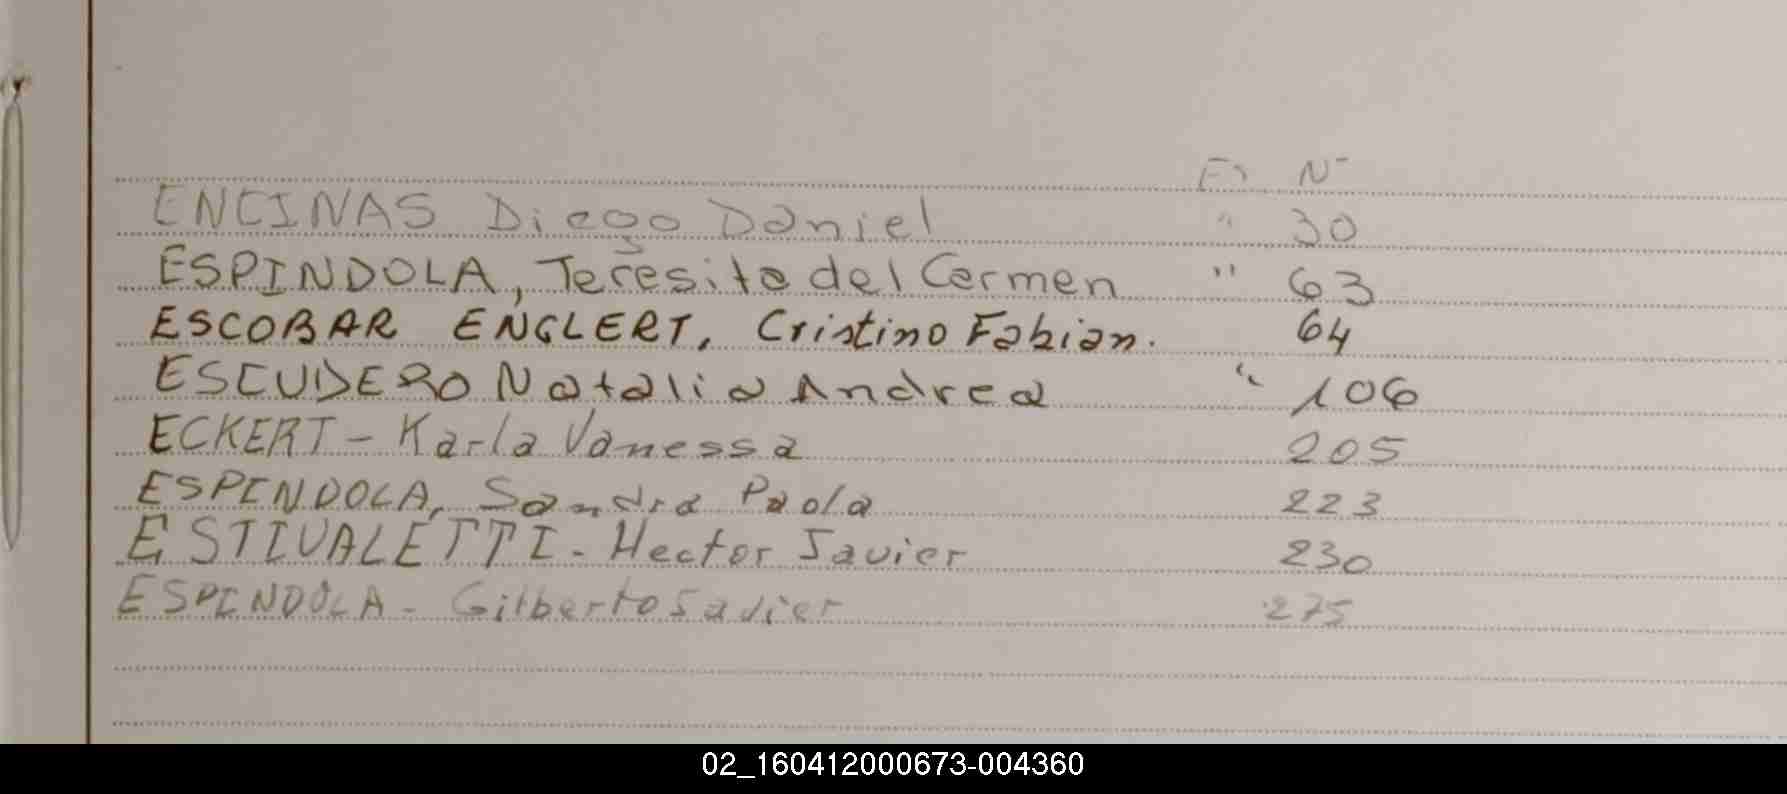 Fº Nº
ENCINAS Diego Daniel " 30
ESPINDOLA, Teresita del Carmen " 63
ESCOBAR ENGLERT, Cristino Fabian. 64
ESCUDERO Natalia Andrea " 106
ECKERT - Karla Vanessa 205
ESPINDOLA, Sandra Paola 223
ESTIVALETTI - Hector Javier 230
ESPINDOLA - Gilberto Javier 275
02_160412000673-004360